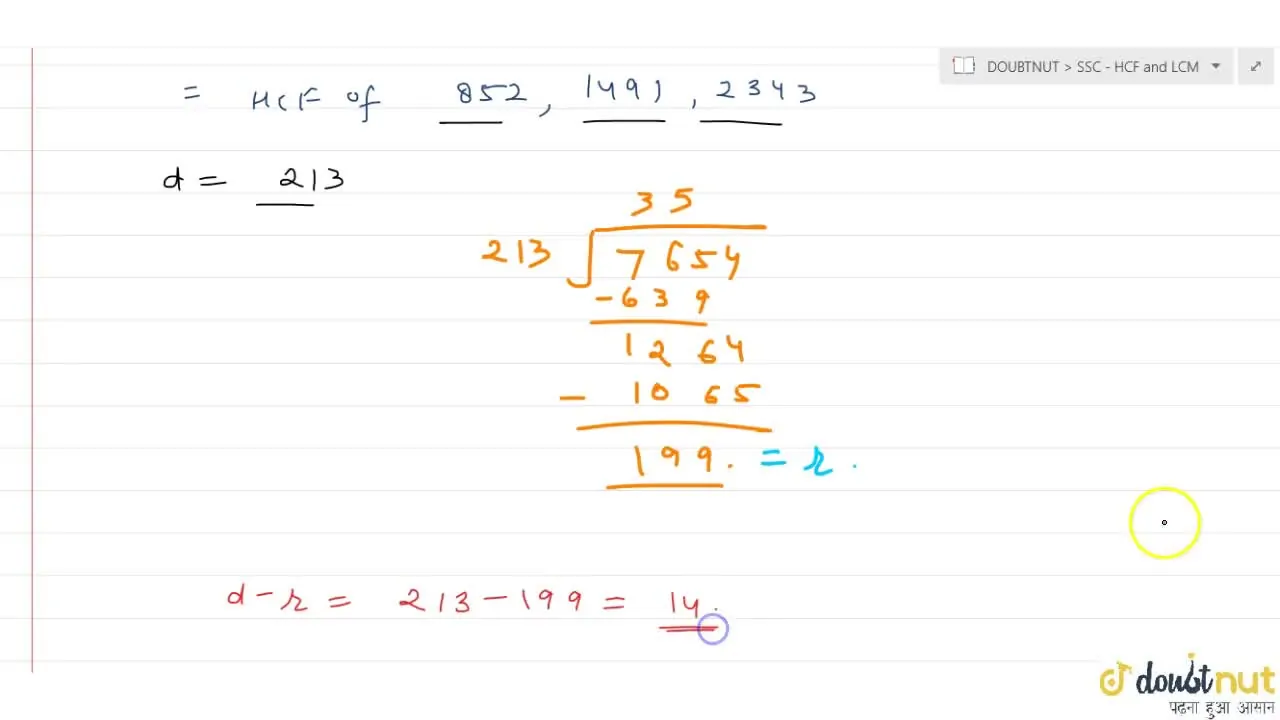 DOUBTNUT > SSC - HCF and LCM
= HCF of 852, 1491, 2343
d = 213
35
213 √7654
-639
1264
- 1065
199. = r.
d-r = 213-199 = 14.
doubtnut
पढ़ना हुआ आसान